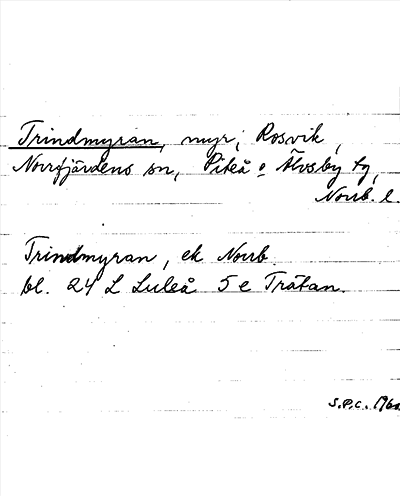 Trindmyran, myr, Rosvik,
Norrfjärdens sn, Piteå o Älvsby tg,
Norrb. l.
Trindmyran, ek Norrb
bl. 24 L Luleå 5 e Trätan.
S.P.C. 1960